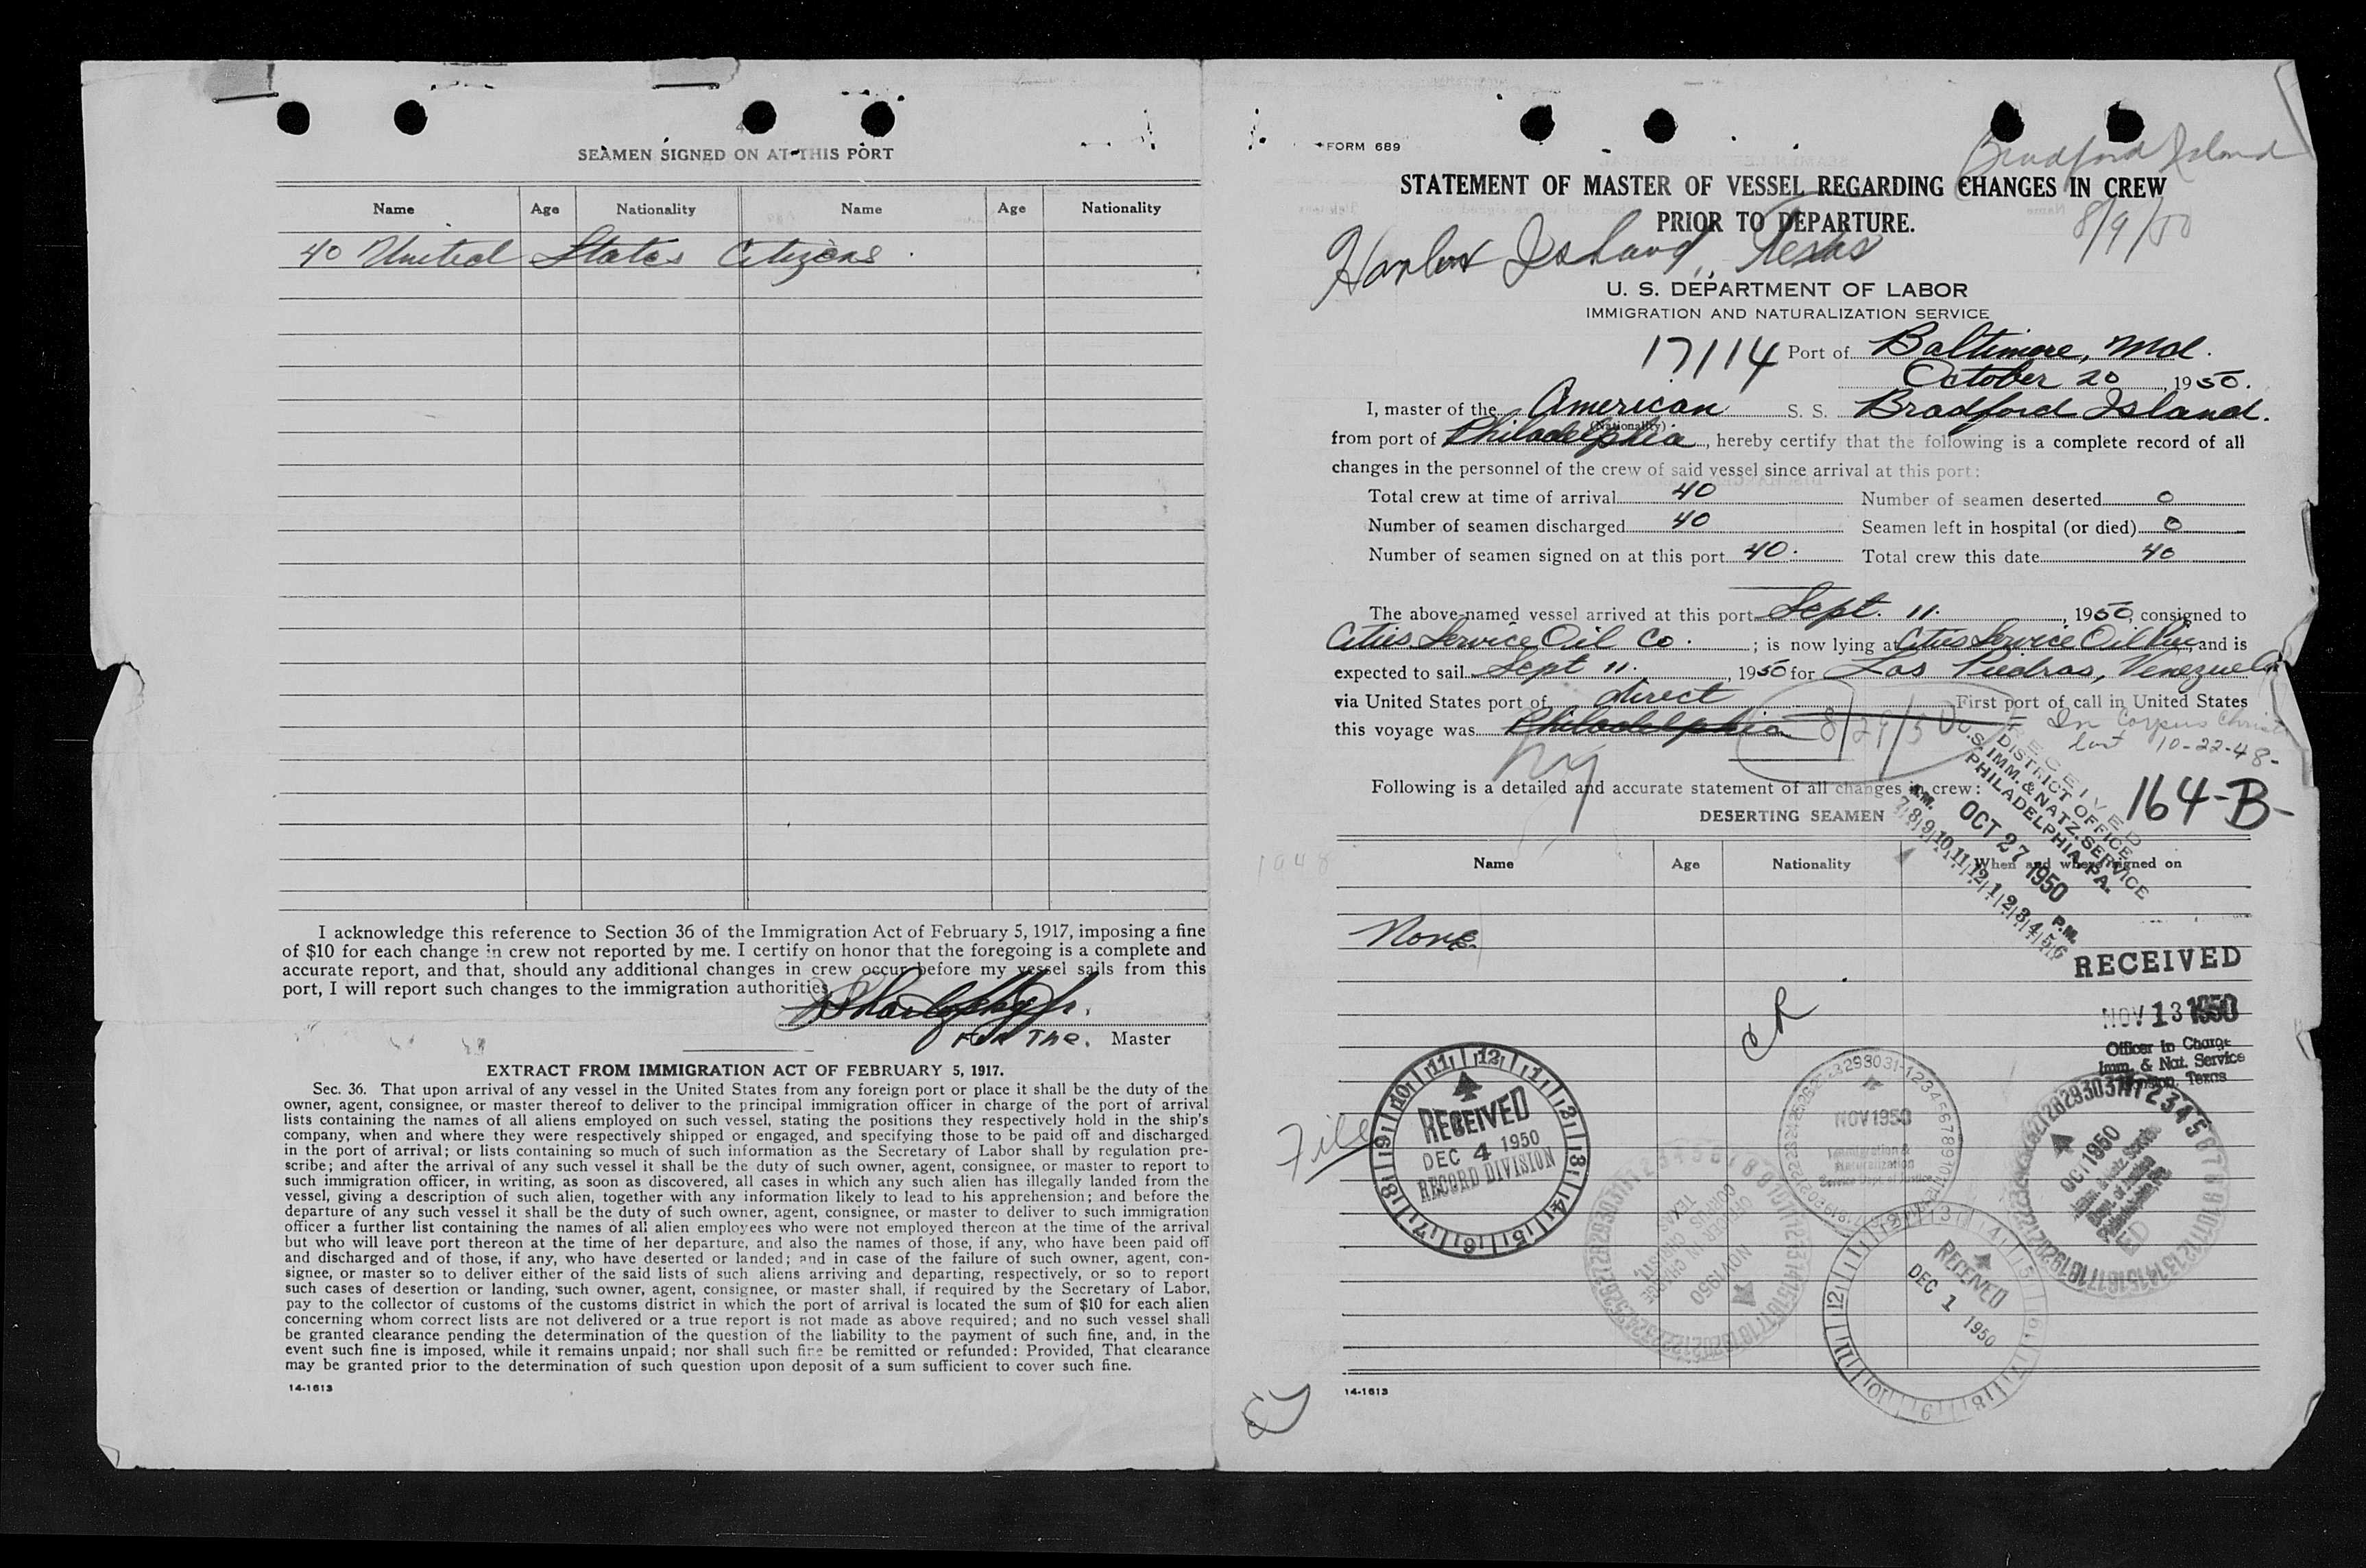 4
SEAMEN SIGNED ON AT THIS PORT
Name Age Nationality Name Age Nationality
40 United States Citizens
I acknowledge this reference to Section 36 of the Immigration Act of February 5, 1917, imposing a fine
of $10 for each change in crew not reported by me. I certify on honor that the foregoing is a complete and
accurate report, and that, should any additional changes in crew occur before my vessel sails from this
port, I will report such changes to the immigration authorities
For The. Master
EXTRACT FROM IMMIGRATION ACT OF FEBRUARY 5, 1917.
Sec. 36. That upon arrival of any vessel in the United States from any foreign port or place it shall be the duty of the
owner, agent, consignee, or master thereof to deliver to the principal immigration officer in charge of the port of arrival
lists containing the names of all aliens employed on such vessel, stating the positions they respectively hold in the ship's
company, when and where they were respectively shipped or engaged, and specifying those to be paid off and discharged
in the port of arrival; or lists containing so much of such information as the Secretary of Labor shall by regulation pre-
scribe; and after the arrival of any such vessel it shall be the duty of such owner, agent, consignee, or master to report to
such immigration officer, in writing, as soon as discovered, all cases in which any such alien has illegally landed from the
vessel, giving a description of such alien, together with any information likely to lead to his apprehension; and before the
departure of any such vessel it shall be the duty of such owner, agent, consignee, or master to deliver to such immigration
officer a further list containing the names of all alien employees who were not employed thereon at the time of the arrival
but who will leave port thereon at the time of her departure, and also the names of those, if any, who have been paid off
and discharged and of those, if any, who have deserted or landed; and in case of the failure of such owner, agent, con-
signee, or master so to deliver either of the said lists of such aliens arriving and departing, respectively, or so to report
such cases of desertion or landing, such owner, agent, consignee, or master shall, if required by the Secretary of Labor,
pay to the collector of customs of the customs district in which the port of arrival is located the sum of $10 for each alien
concerning whom correct lists are not delivered or a true report is not made as above required; and no such vessel shall
be granted clearance pending the determination of the question of the liability to the payment of such fine, and, in the
event such fine is imposed, while it remains unpaid; nor shall such fine be remitted or refunded: Provided, That clearance
may be granted prior to the determination of such question upon deposit of a sum sufficient to cover such fine.
14-1613
FORM 689
Bradford Island
STATEMENT OF MASTER OF VESSEL REGARDING CHANGES IN CREW
PRIOR TO DEPARTURE.
8/9/50
Island, Texas
U. S. DEPARTMENT OF LABOR
IMMIGRATION AND NATURALIZATION SERVICE
17114 Port of Baltimore, Md.
October 20, 1950.
I, master of the American S. S. Bradford Island.
(Nationality)
from port of Philadelphia, hereby certify that the following is a complete record of all
changes in the personnel of the crew of said vessel since arrival at this port:
Total crew at time of arrival 40 Number of seamen deserted 0
Number of seamen discharged 40 Seamen left in hospital (or died) 0
Number of seamen signed on at this port 40. Total crew this date 40
The above-named vessel arrived at this port Sept. 11. , 1950, consigned to
Cities Service Oil Co. ; is now lying at Cities Service Oil Pier, and is
expected to sail Sept 11. , 1950 for Las Piedras, Venezuela
via United States port of direct First port of call in United States
this voyage was Philadelphia 8/29/50 In Corpus Christi
last 10-22-48-
NY
Following is a detailed and accurate statement of all changes in crew:
164-B-
DESERTING SEAMEN
RECEIVED
DISTRICT OFFICE
U.S. IMM. & NATZ. SERVICE
PHILADELPHIA, PA.
A.M. OCT 27 1950 P.M.
7 8 9 10 11 12 1 2 3 4 5 6
Name Age Nationality When and where signed on
1948
None
RECEIVED
NOV 13 1950
Officer In Charge
Imm. & Nat. Service
Texas
CR
File
RECEIVED
DEC 4 1950
RECORD DIVISION
NOV 1950
Immigration &
Naturalization
Service Dept. of Justice
OCT 1950
OFFICER IN CHARGE
CORPUS CHRISTI,
TEXAS
NOV 1950
RECEIVED
DEC 1 1950
14-1613